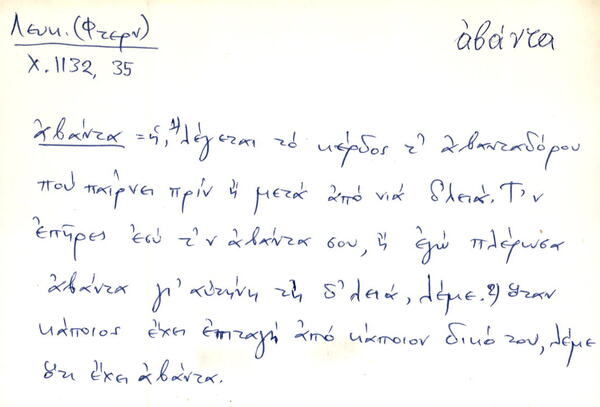 Λευκ. (Φτερν)
ἀβάντα
χ. 1132, 35
ἀβάντα = ἡ, 1) λέγεται τό κέρδος τ' ἀβανταδόρου
πού παίρνει πρίν ἤ μετά ἀπό νιά δ'λειά. Τ'ν
ἐπῆρες ἐσύ τ'ν ἀβάντα σου, ἤ ἐγώ πλέρωσα
ἀβάντα γι' αὐτήνη τη δ'λειά, λέμε. 2) ὅταν
κάποιος ἔχει ἐπιταγή ἀπό κάποιον δικό του, λέμε
ὅτι ἔχει ἀβάντα.